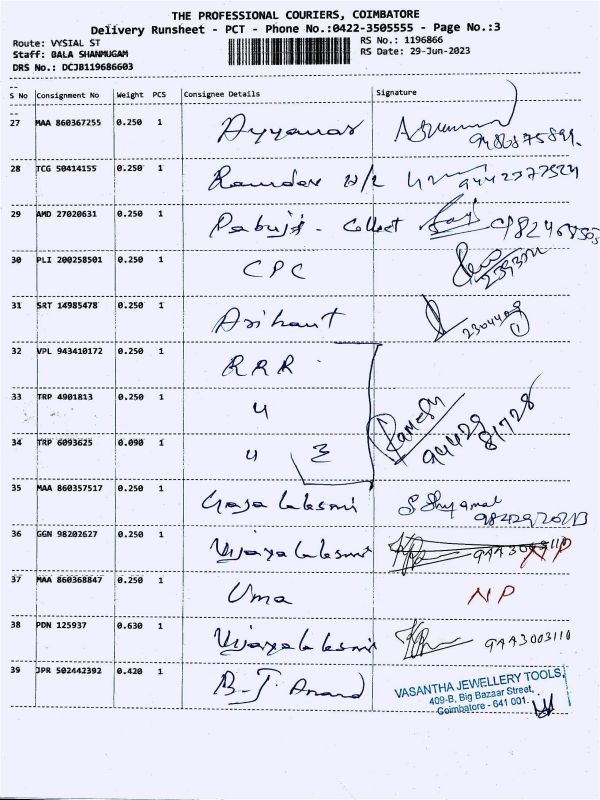 THE PROFESSIONAL COURIERS, COIMBATORE
Delivery Runsheet - PCT - Phone No.:0422-3505555 - Page No.:3
Route: VYSIAL ST
RS No.: 1196866
Staff: BALA SHANMUGAM
RS Date: 29-Jun-2023
DRS No.: DCJB119686603
S No Consignment No Weight PCS Consignee Details Signature
27 MAA 860367255 0.250 1 Ayyanar
28 TCG 50414155 0.250 1 Ramdev 9442377524
29 AMD 27020631 0.250 1 Pabuji - Collect
30 PLI 200258501 0.250 1 CPC
31 SRT 14985478 0.250 1 Arihant 2304409 1
32 VPL 943410172 0.250 1 RRR
33 TRP 4901813 0.250 1 " Ramesh
34 TRP 6093625 0.090 1 " 3 94429 81728
35 MAA 860357517 0.250 1 Gajalakshmi S Shyamal
36 GGN 98202627 0.250 1 Vijayalakshmi 9443003110 NP
37 MAA 860368847 0.250 1 Uma NP
38 PDN 125937 0.630 1 Vijayalakshmi 9443003110
39 JPR 502442392 0.420 1 B.J. Anand
VASANTHA JEWELLERY TOOLS,
409-B, Big Bazaar Street,
Coimbatore - 641 001.